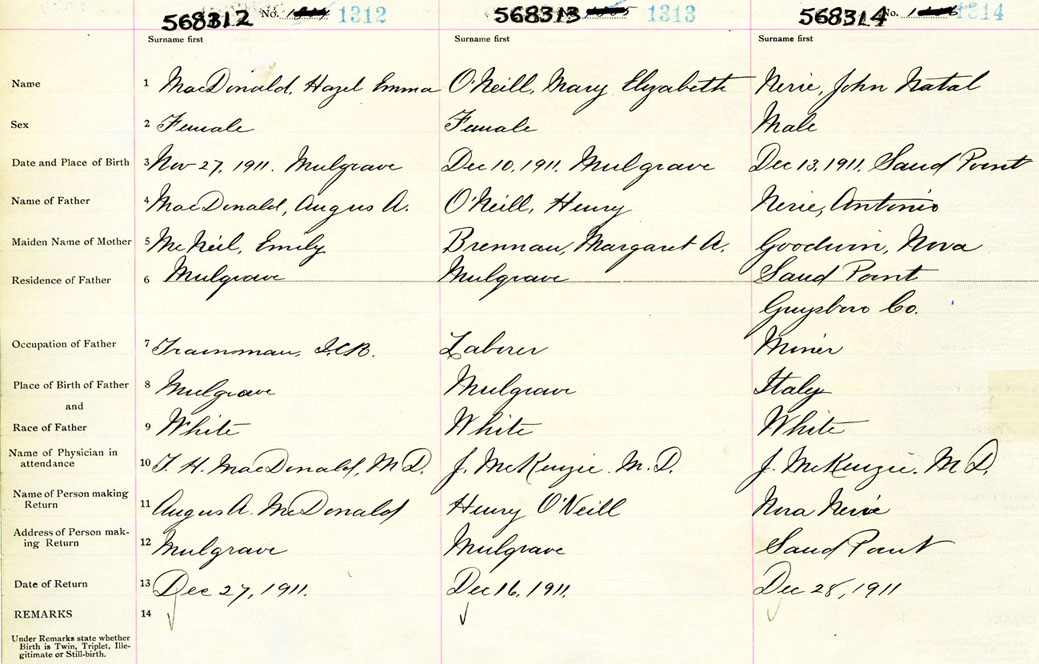 568312 No. 1312 568313 1313 568314 No. 1314
Surname first Surname first Surname first
Name 1 MacDonald, Hazel Emma O'Neill, Mary Elizabeth Nerie, John Natal
Sex 2 Female Female Male
Date and Place of Birth 3 Nov 27, 1911. Mulgrave Dec 10, 1911. Mulgrave Dec 13, 1911. Sand Point
Name of Father 4 MacDonald, Angus A. O'Neill, Henry Nerie, Antonio
Maiden Name of Mother 5 McNeil, Emily Brennan, Margaret A. Goodwin, Nora
Residence of Father 6 Mulgrave Mulgrave Sand Point
Guysboro Co.
Occupation of Father 7 Trainman, I.C.R. Laborer Miner
Place of Birth of Father 8 Mulgrave Mulgrave Italy
and
Race of Father 9 White White White
Name of Physician in
attendance 10 MacDonald, M.D. J. McKenzie. M.D. J. McKenzie. M.D.
Name of Person making
Return 11 Angus A. McDonald Henry O'Neill Nora Nerie
Address of Person mak-
ing Return 12 Mulgrave Mulgrave Sand Point
Date of Return 13 Dec 27, 1911. Dec 16, 1911. Dec 28, 1911
REMARKS 14
Under Remarks state whether
Birth is Twin, Triplet, Ille-
gitimate or Still-birth.